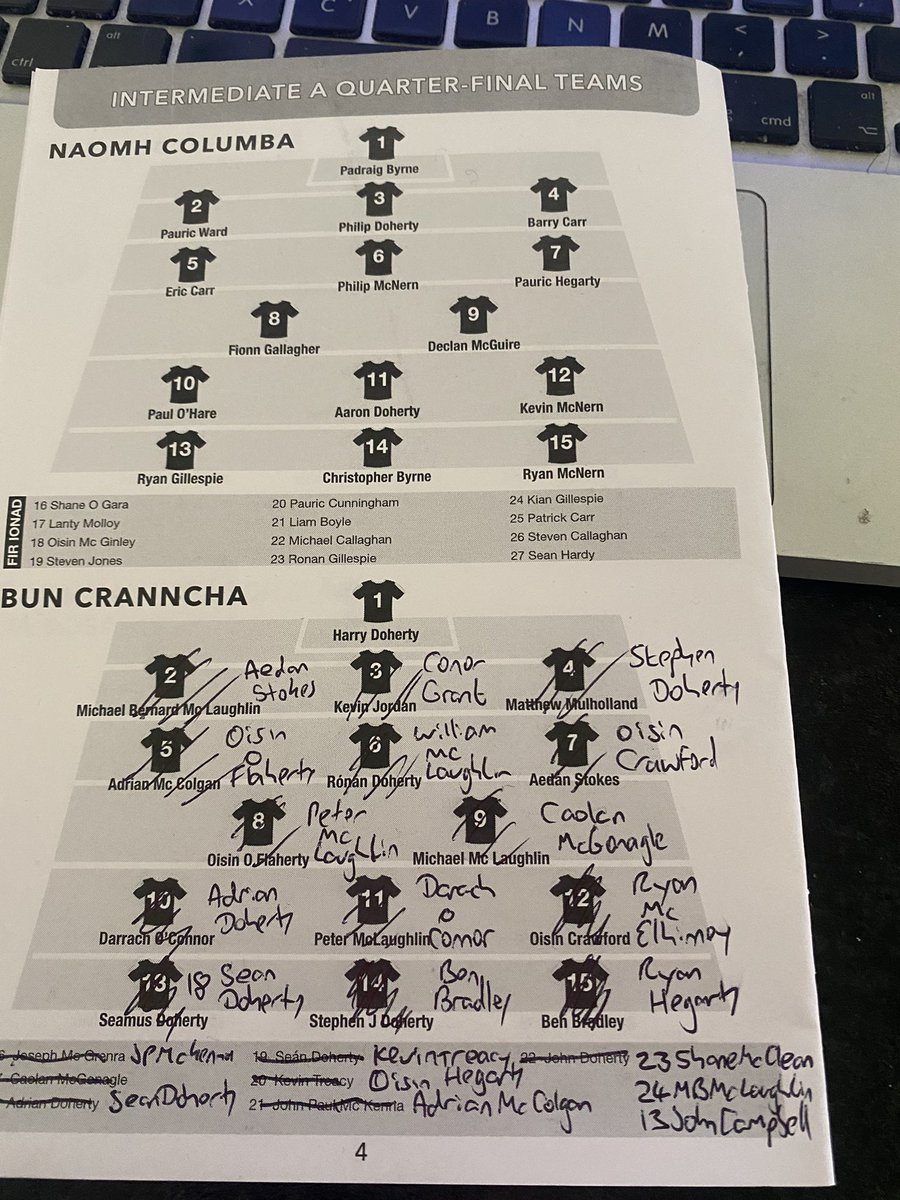 ctrl alt X C V B N M < , > .
cmd alt
INTERMEDIATE A QUARTER-FINAL TEAMS
NAOMH COLUMBA
1
Padraig Byrne
2 3 4
Pauric Ward Philip Doherty Barry Carr
5 6 7
Eric Carr Philip McNern Pauric Hegarty
8 9
Fionn Gallagher Declan McGuire
10 11 12
Paul O'Hare Aaron Doherty Kevin McNern
13 14 15
Ryan Gillespie Christopher Byrne Ryan McNern
FIR IONAD
16 Shane O Gara 20 Pauric Cunningham 24 Kian Gillespie
17 Lanty Molloy 21 Liam Boyle 25 Patrick Carr
18 Oisin Mc Ginley 22 Michael Callaghan 26 Steven Callaghan
19 Steven Jones 23 Ronan Gillespie 27 Sean Hardy
BUN CRANNCHA
1
Harry Doherty
2 Aedan Stokes 3 Conor Grant 4 Stephen Doherty
Michael Bernard Mc Laughlin Kevin Jordan Matthew Mulholland
5 Oisin O Flaherty 6 William Mc Laughlin 7 Oisin Crawford
Adrian Mc Colgan Rónán Doherty Aedán Stokes
8 Peter Mc Laughlin 9 Caolan McGonagle
Oisin O,Flaherty Michael Mc Laughlin
10 Adrian Doherty 11 Darach O Connor 12 Ryan Mc Elhinney
Darrach O'Connor Peter McLaughlin Oisin Crawford
13 18 Sean Doherty 14 Ben Bradley 15 Ryan Hegarty
Seamus Doherty Stephen J Doherty Ben Bradley
Joseph Mc Grenra 19 Seán Doherty Kevin Treacy 22 John Doherty 23 Shane McClean
Caolan McGonagle 20 Kevin Treacy Oisin Hegarty 24 MB McLaughlin
Adrian Doherty Sean Doherty 21 John Paul Mc Kenna Adrian Mc Colgan 13 John Campbell
4